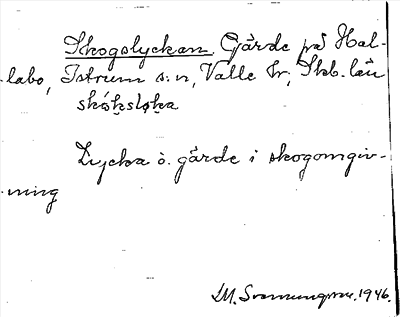 Skogslyckan Gärde på Hal-
labo, Istrum s:n, Valle hr, Skb. län
skóksløka
Lycka o. gärde i skogomgiv-
ning
1946.